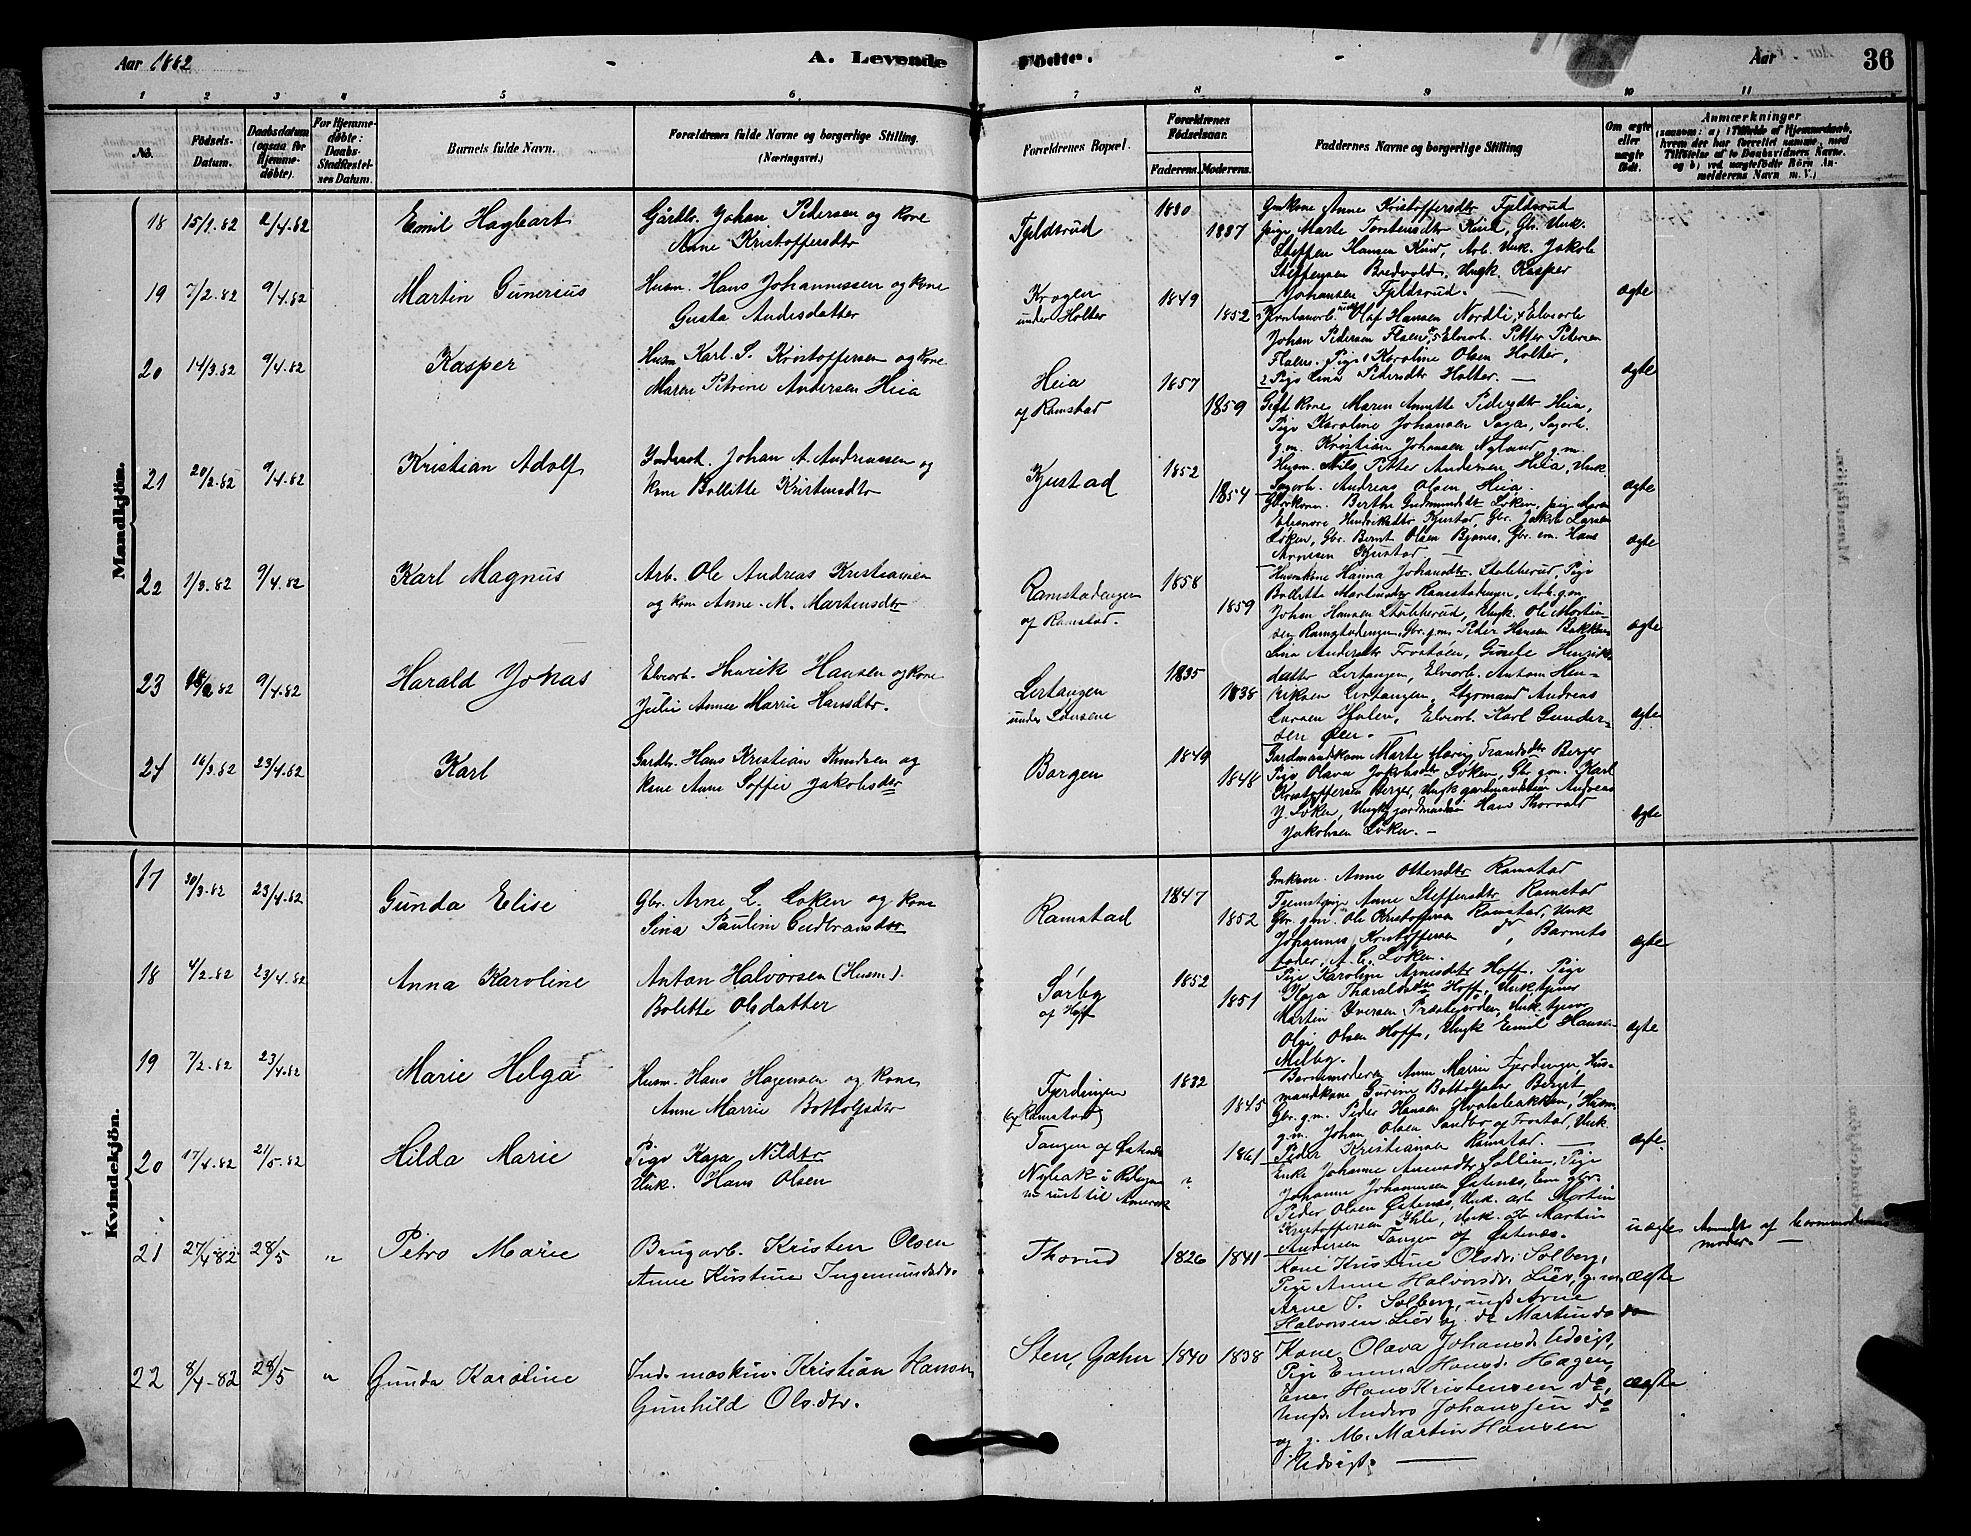 Aar 1882
A. Levende
Fødte.
Aar
36
1 2 3 4 5 6 7 8 9 10 11
No.
Fødsels-Datum.
Daabsdatum (ogsaa for Hjemme-døbte).
For Hjemme-døbte: Daabs-Stadfæstel-ses Datum.
Barnets fulde Navn.
Forældrenes fulde Navne og borgerlige Stilling.
(Næringsvei.)
Forældrenes Bopæl.
Forældrenes Fødselsaar.
Faderens. Moderens.
Faddernes Navne og borgerlige Stilling
Om ægte eller uægte født.
Anmærkninger
Mandkjön.
18 15/1.82 2/4.82 Emil Hagbart Gårdb. Johan Pedersen og kone
Anne Kristoffersdtr
Fjeldsrud 1830
1837
Gmkone Anne Kristoffersdtr Fjeldsrud
Pige Marte Torstensdtr Kind, Gbr. Unk.
Steffen Hansen Kind, Arb. Unk. Jakob
Steffensen Bredvold, Ungk. Kasper
Johansen Fjeldsrud. ægte
19 7/2.82 9/4.82 Martin Gunerius Husm. Hans Johannessen og kone
Gusta Andersdatter
Krogen
under Holter
1849
1852
Olaf Hansen Nordli, Elvearb.
Johan Pedersen Flaen, Elvearb. Petter Pedersen
Flaen. Pige Karoline Olsen Holter,
Pige Lina Pedersdtr Holter. ægte
20 14/3.82 9/4.82 Kasper Husm. Karl. S. Kristoffersen og kone
Maren Petrine Andersen Heia
Heia
af Ramstad
1857
1859
Gift kone Maren Annette Pedersdtr Heia,
Pige Karoline Johansen Saga, Sagarb.
g.m. Kristian Johansen Nyland g.m.
Husm. Nils Petter Andersen Heia, Unk
Sagarb. Andreas Olsen Heia. ægte
21 20/2.82 9/4.82 Kristian Adolf Inderst. Johan A. Andreassen og
kone Bollette Kristensdtr
Kjustad
1852
1854
Gbrkone. Berthe Gudmundsdtr Løken, pige Maren
Eleonore Henriksdtr Kjustad, Gbr. Jakob Larsen
Løken, Gbr. Bernt Olsen Bjønes, Gbr. em. Hans
Arnesen Kjustad ægte
22 1/3.82 9/4.82 Karl Magnus Arb. Ole Andreas Kristiansen
og kone Anne. M. Martensdtr
Ramstadengen
af Ramstad.
1858
1859
Husmkone Hanna Johansdtr. Stubberud, Pige
Bollette Martinsdtr Ramstadengen, Arb. g.m.
Johan Hansen Stubberud, Ungk. Ole Mortin-
sen Ramstadengen, Gbr. g.m. Peder Hansen Bakken ægte
23 18/2 82 9/4.82 Harald Johas Elvearb. Henrik Hansen og kone
Julie Annee Marrie Hansdtr.
Lertangen
under Lensene
1835
1838
Lina Andersdtr Frostølen, Gunele Henriks-
datter Lertangen, Elvearb. Antom Hen-
riksen Lertangen, Styrmand Andreas
Larsen Holen, Elvearb. Karl Gunder-
sen Øien. ægte
24 16/3.82 23/4.82 Karl Gardbr. Hans Kristian Knudsen og
kone Anne Soffie Jakobsdtr
Borgen
1849
1848
Gardmandskone Marte Marie Frandsdtr Berger
Pige Olava Jakobsdtr Løken, Gbr g.m. Karl
Kristoffersen Berger, Ungk gardmandssøn Andreas
J. Løken, Ungk gardmandssøn Hans Thorvald
Jakobsen Løken. ægte
Kvindekjön.
17 30/3.82 23/4.82 Gunda Elise Gbr. Arne L. Løken og kone
Lina Pauline Gudbransdtr
Ramstad
1847
1852
Gmkone. Anne Ottersdtr Ramstad
Tjenstpige Anne Steffensdtr Ramstad
Gbr. gbr. Ole Kristoffersen Ramstad, Unk
Johannes Kristoffersen do, Barnets
fader, A. L. Løken. ægte
18 4/2.82 23/4.82 Anna Karoline Anton Halvorsen (Husm).
Bolette Olsdatter
Sørby
af Hoff
1852
1851
Pige Karoline Arnesdtr Hoff. Pige
Kaja Tharaldsdtr Hoff, Unk tjener
Martin Iversen Præstegården, Unk. tjener
Olaf Olsen Hoff, Ungk Emil Hansen
Melby. ægte
19 7/2.82 23/4.82 Marie Helga Husm. Hans Hagensen og kone
Anne Marrie Bottolfsdtr
Fjerdingen
(af Ramstad)
1832
1845
Barnemoderen Anne Marrie Fjerdingen, Hus-
mandkone Gurine Bottolfsdtr Berget
Gbr. g.m. Peder Hansen Hvalsbakken, Husm.
g.m. Johan Olsen Sandbo af Frostad, Unk.
Peder Kristiansen Ramstad. ægte
20 17/4.82 21/5.82 Hilda Marie Pige Kaja Nilsdtr
Unk. Hans Olsen
Tangen af Østenes
Nybak i Rælingen
nu reist til Amerika
1861
Enke Johanne Amundsdtr Sollien, Pige
Johanne Johannesen Østenes, Em gbr.
Peder Olsen Østenes, Unk. arb. Mortin
Kristoffersen Ihle, Unk. arb Martin
Andersen Tangen af Østenes. uægte Anmeldt af barnemoderens
moder. —
21 27/4 82 28/5 " Petra Marie Brugarb. Kristen Olsen
Anne Kirstine Ingemundsdr.
Thorud 1826 1841
Kone Kristine Olsdr. Solberg,
Pige Anne Halvorsdr. Lier, g.m.
Arne J. Solberg, ungk Arne
Halvorsen Lier og do Martin do do ægte
22 8/4-82 28/5 " Gunda Karoline Ind. maskin. Kristian Hansen
Gunhild Olsdtr.
Sten, Gahn 1840 1838
Kone Olava Johansd. Udsigt,
Pige Emma Hansd. Hagen,
Enkem. Hans Kristensen do,
Ungk. Anders Johanssen do
og g. M. Martin Hansen
Udsigt. ægte